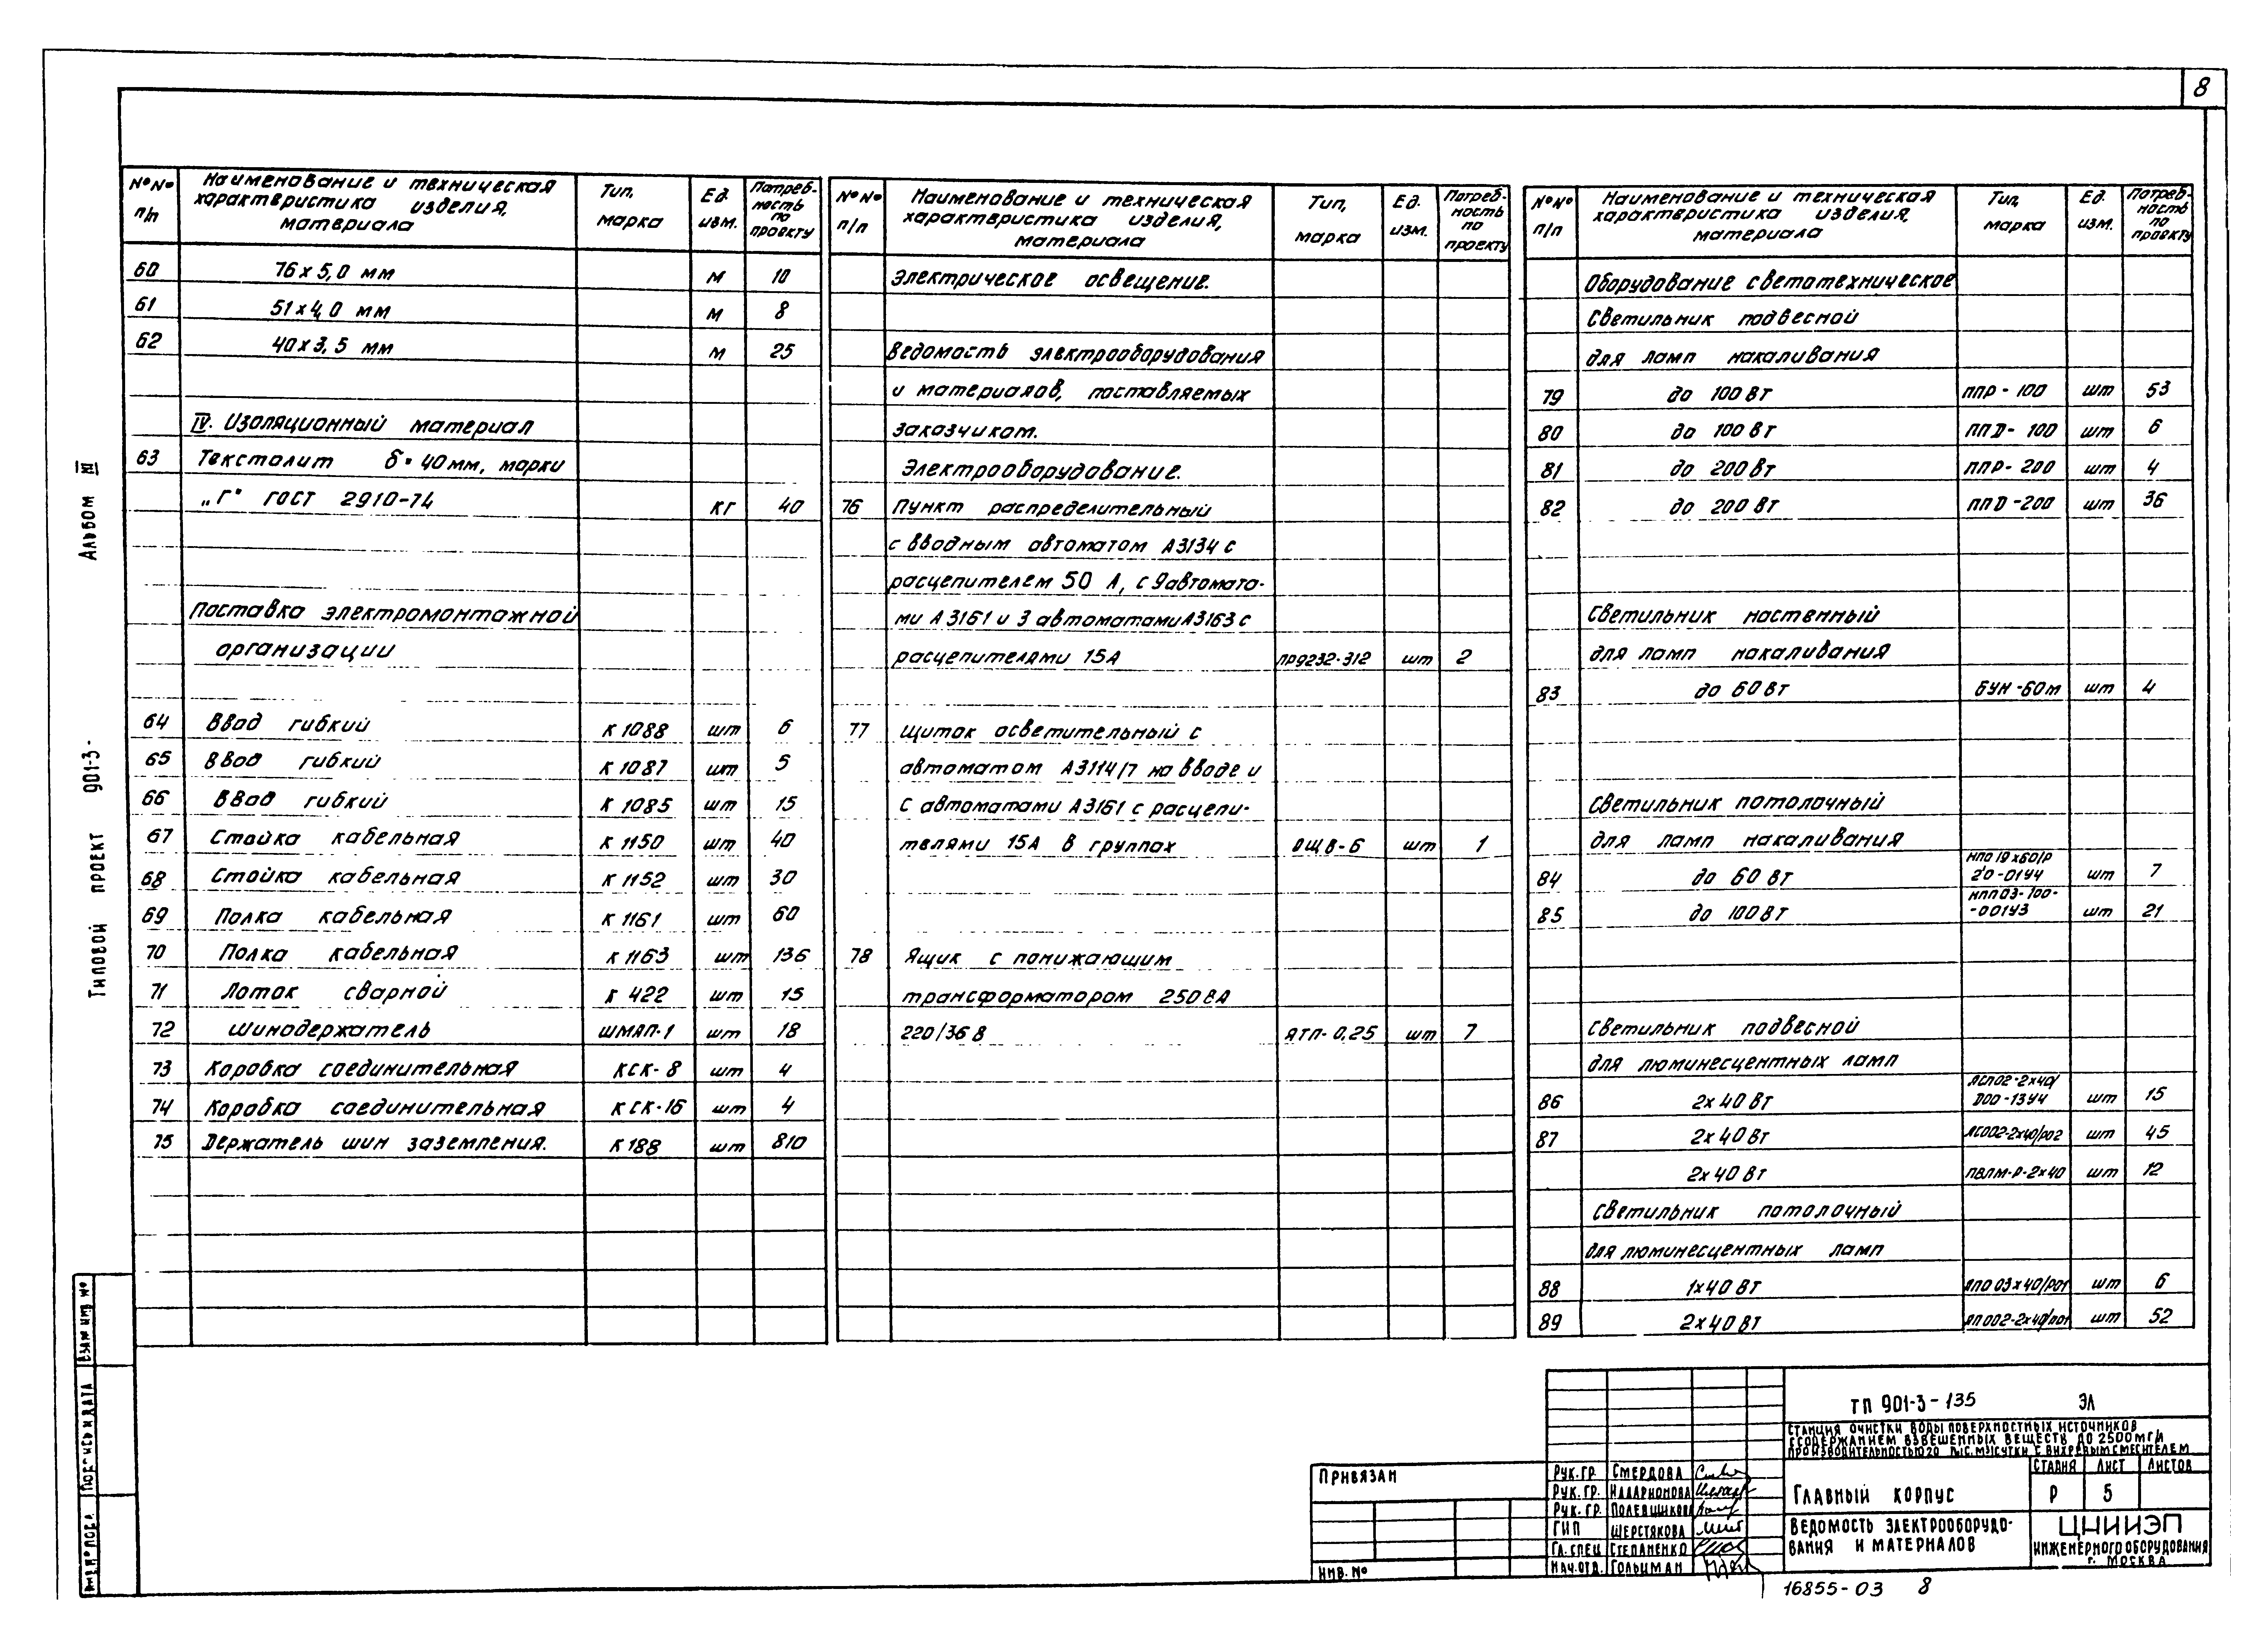 8
Альбом III
Типовой проект 901-3-
№№ п/п Наименование и техническая характеристика изделия, материала Тип, марка Ед. изм. Потребность по проекту
60 76х5,0 мм м 10
61 51х4,0 мм м 8
62 40х3,5 мм м 25
IV. Изоляционный материал
63 Текстолит δ=40мм, марки
„Г" ГОСТ 2910-74 кг 40
Поставка электромонтажной
организации
64 Ввод гибкий К 1088 шт 6
65 Ввод гибкий К 1087 шт 5
66 Ввод гибкий К 1085 шт 15
67 Стойка кабельная К 1150 шт 40
68 Стойка кабельная К 1152 шт 30
69 Полка кабельная К 1161 шт 60
70 Полка кабельная К 1163 шт 136
71 Лоток сварной К 422 шт 15
72 Шинодержатель ШМАП-1 шт 18
73 Коробка соединительная КСК-8 шт 4
74 Коробка соединительная КСК-16 шт 4
75 Держатель шин заземления. К 188 шт 810
№№ п/п Наименование и техническая характеристика изделия, материала Тип, марка Ед. изм. Потребность по проекту
Электрическое освещение.
Ведомость электрооборудования
и материалов, поставляемых
заказчиком.
Электрооборудование.
76 Пункт распределительный
с вводным автоматом А3134 с
расцепителем 50 А, с 9автомата-
ми А 3161 и 3 автоматами А3163 с
расцепителями 15А ПР9232-312 шт 2
77 Щиток осветительный с
автоматом А3114/7 на вводе и
с автоматами А3161 с расцепи-
телями 15А в группах ОЩВ-6 шт 1
78 Ящик с понижающим
трансформатором 250ВА
220/36В ЯТП-0,25 шт 7
№№ п/п Наименование и техническая характеристика изделия, материала Тип, марка Ед. изм. Потребность по проекту
Оборудование светотехническое
Светильник подвесной
для ламп накаливания
79 до 100 Вт ППР-100 шт 53
80 до 100 Вт ППД-100 шт 6
81 до 200 Вт ППР-200 шт 4
82 до 200 Вт ППД-200 шт 36
Светильник настенный
для ламп накаливания
83 до 60 Вт БУН-60м шт 4
Светильник потолочный
для ламп накаливания
84 до 60 Вт НПО 19х60/Р20-01У4 шт 7
85 до 100 Вт НПП03-100-
-001У3 шт 21
Светильник подвесной
для люминесцентных ламп
86 2х40 Вт ЛСП02-2х40/
Д00-13У4 шт 15
87 2х40 Вт ЛСО02-2х40/Р02 шт 45
2х40 Вт ПВЛМ-Р-2х40 шт 12
Светильник потолочный
для люминесцентных ламп
88 1х40 Вт ЛПО 03х40/Р01 шт 6
89 2х40 Вт ЛПО02-2х40/П01 шт 52
Взам. инв. №
Подпись и дата
Инв. № подл.
Привязан
Инв. №
Рук. гр. Смердова
Рук. гр. Илларионова
Рук. гр. Полевщикова
ГИП Шерстякова
Гл. спец Степаненко
Нач. отд. Гольцман
ТП 901-3-135 ЭЛ
Станция очистки воды поверхностных источников
с содержанием взвешенных веществ до 2500мг/л
производительностью 20 тыс. м3/сутки с вихревым смесителем
Главный корпус
Стадия Лист Листов
Р 5
Ведомость электрооборудо-
вания и материалов
ЦНИИЭП
инженерного оборудования
г. Москва
16855-03 8